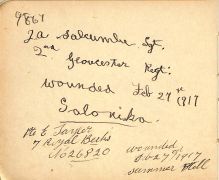 9867
2a Salcumbe Sgt.
2nd Gloucester Regt:
wounded Feb 27th 1917
Salonika.
Pte E Tanner
7 Royal Berks
No 26820
wounded
Feb 27th/1917
Summer Hill